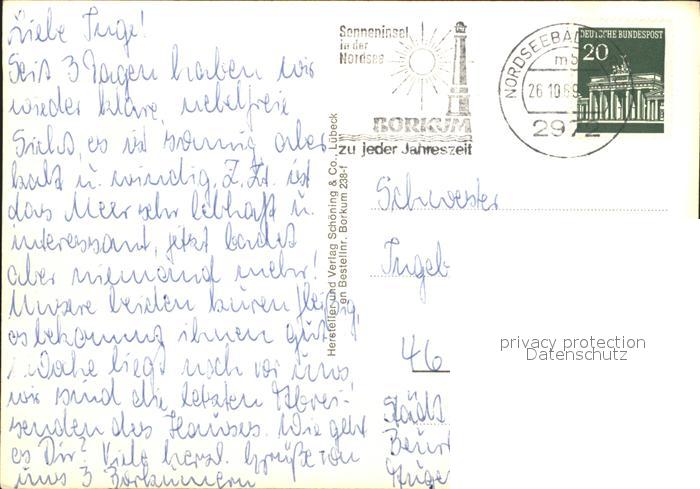 Liebe Inge!
Seit 3 Tagen haben wir
wieder klare, nebelfreie
Sicht, es ist sonnig aber
kalt u. windig. Z. Zt. ist
das Meer sehr lebhaft u.
interessant, jetzt badet
aber niemand mehr!
Unsere beiden kuren fleißig,
es bekommt ihnen gut.
1 Woche liegt noch vor uns,
wir sind die letzten Abrei-
senden des Hauses. Wie geht
es Dir? Viele herzl. Grüße von
uns 3 Borkumern
Hersteller und Verlag Schöning & Co., Lübeck
en Bestellnr. Borkum 238-f
Sonneninsel
in der
Nordsee
BORKUM
zu jeder Jahreszeit
NORDSEEBAD
26.10.69
2972
DEUTSCHE BUNDESPOST
20
Schwester
Ingeb
46
Städt
privacy protection
Datenschutz